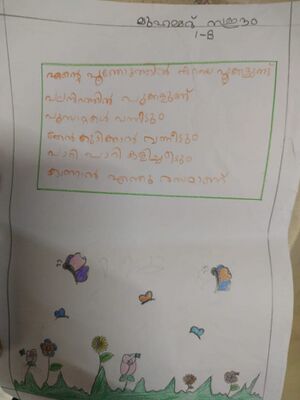 മുഹമ്മദ് സഇദം
1-B
എന്റെ പൂന്തോട്ടത്തിൽ നിറയെ പൂക്കളുണ്ട്
പലനിറത്തിൽ പൂക്കളുണ്ട്
പൂമ്പാറ്റകൾ വന്നീടും
തേൻ കുടിക്കാൻ വന്നീടും
പാറി പാറി കളിച്ചീടും
കാണാൻ എന്തു രസമാണ്